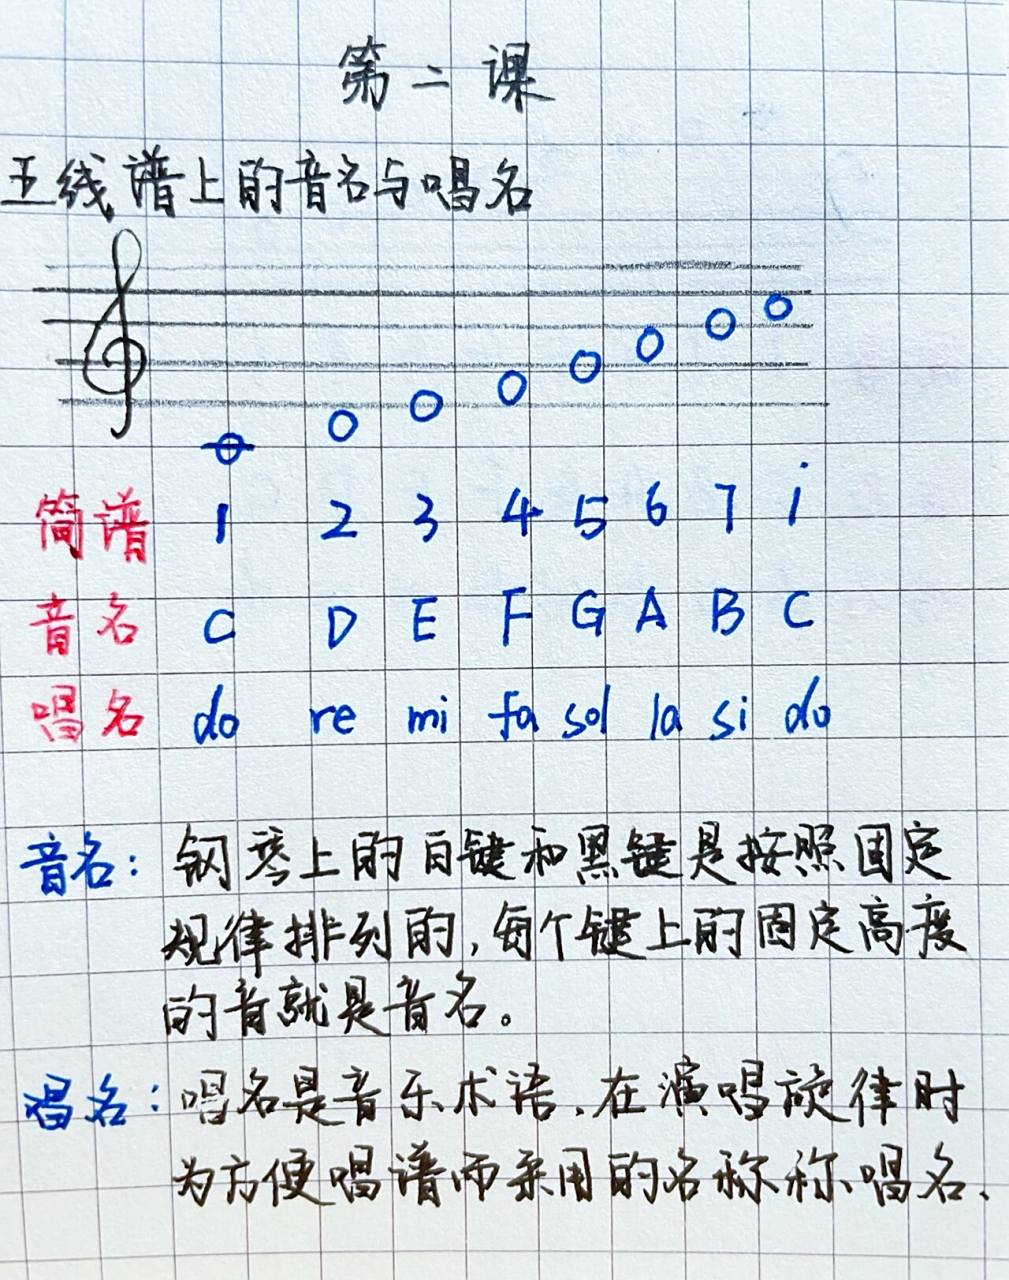 第二课
五线谱上的音名与唱名
简谱 1 2 3 4 5 6 7 i
音名 C D E F G A B C
唱名 do re mi fa sol la si do
音名：钢琴上的白键和黑键是按照固定
规律排列的,每个键上的固定高度
的音就是音名。
唱名：唱名是音乐术语.在演唱旋律时
为方便唱谱而采用的名称称唱名.